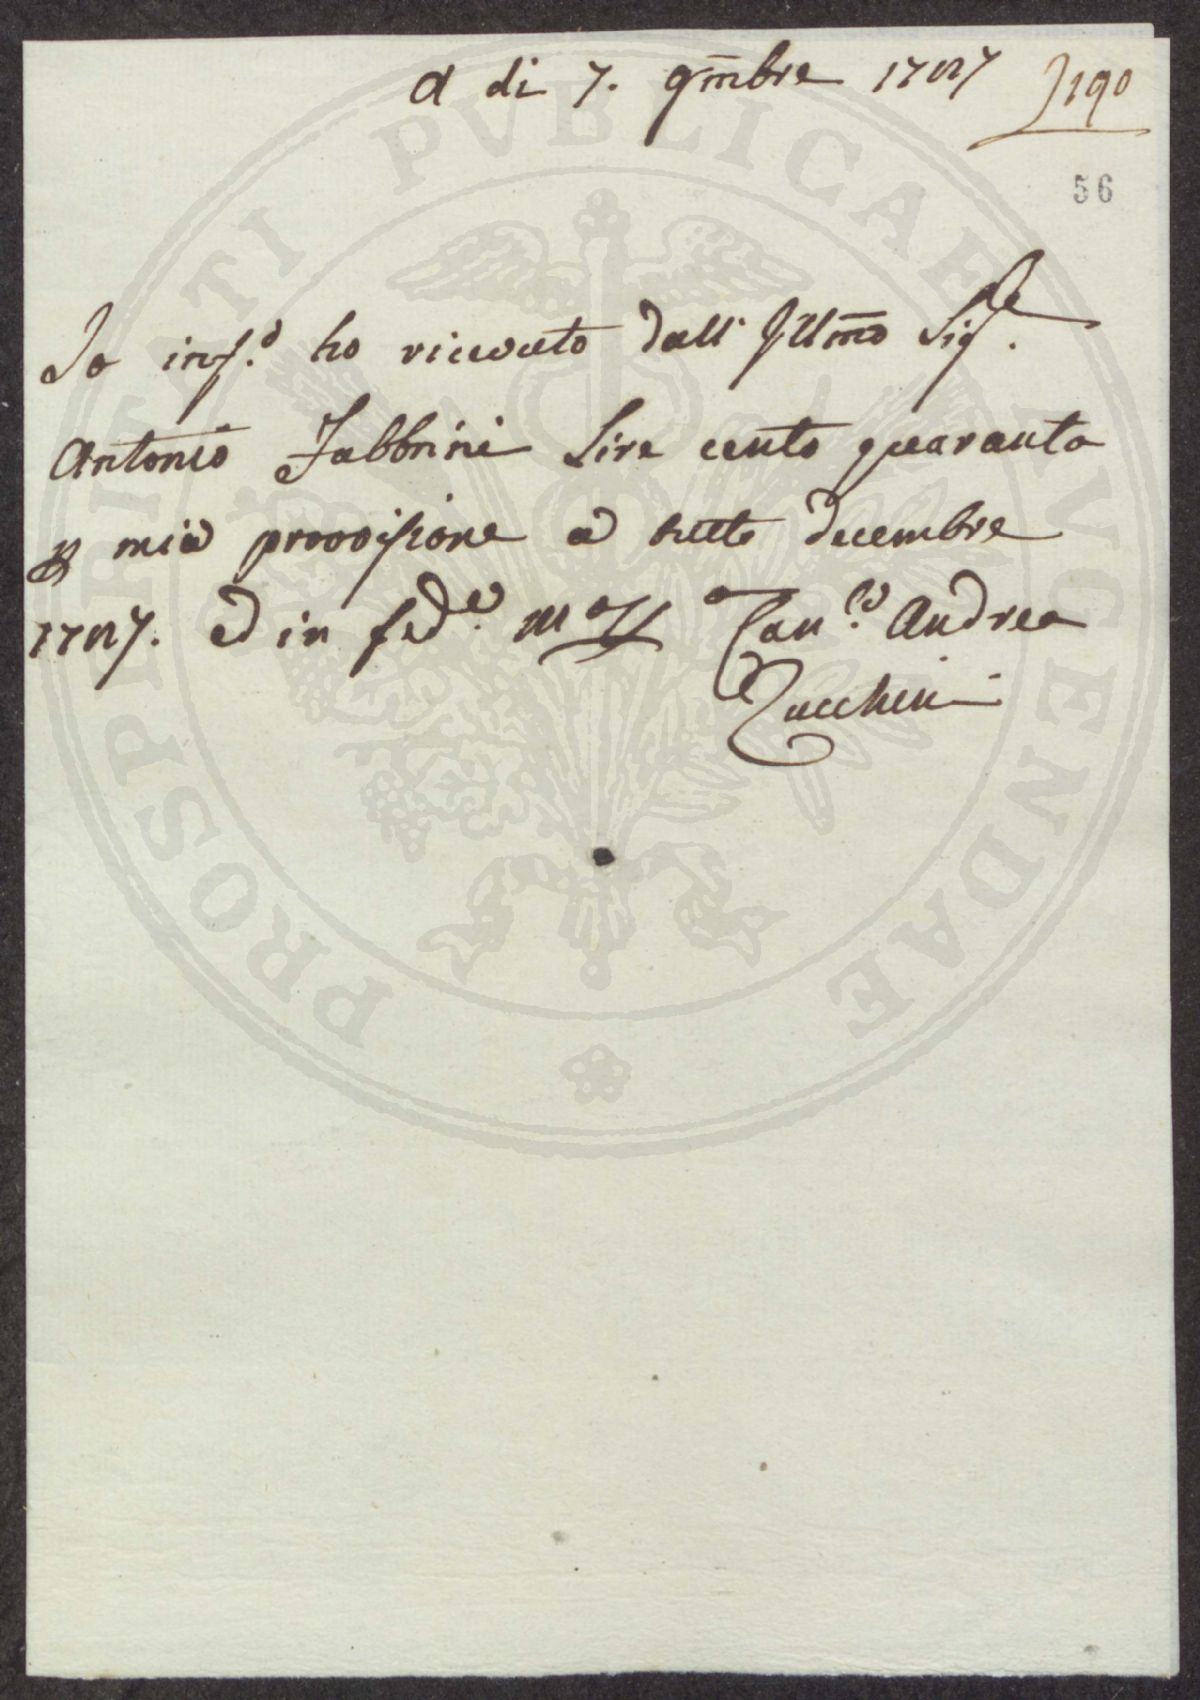 A di 7. 9mbre 1787
190
56
Io inf.o ho ricevuto dall' Ill̃mo Sig.re
Antonio Fabbrini Lire cento quaranta
p mia provvisione a tutto decembre
1787. ed in fede mpp Can.co Andrea
Zucchini
PROSPERITATI PVBLICAE AVGENDAE